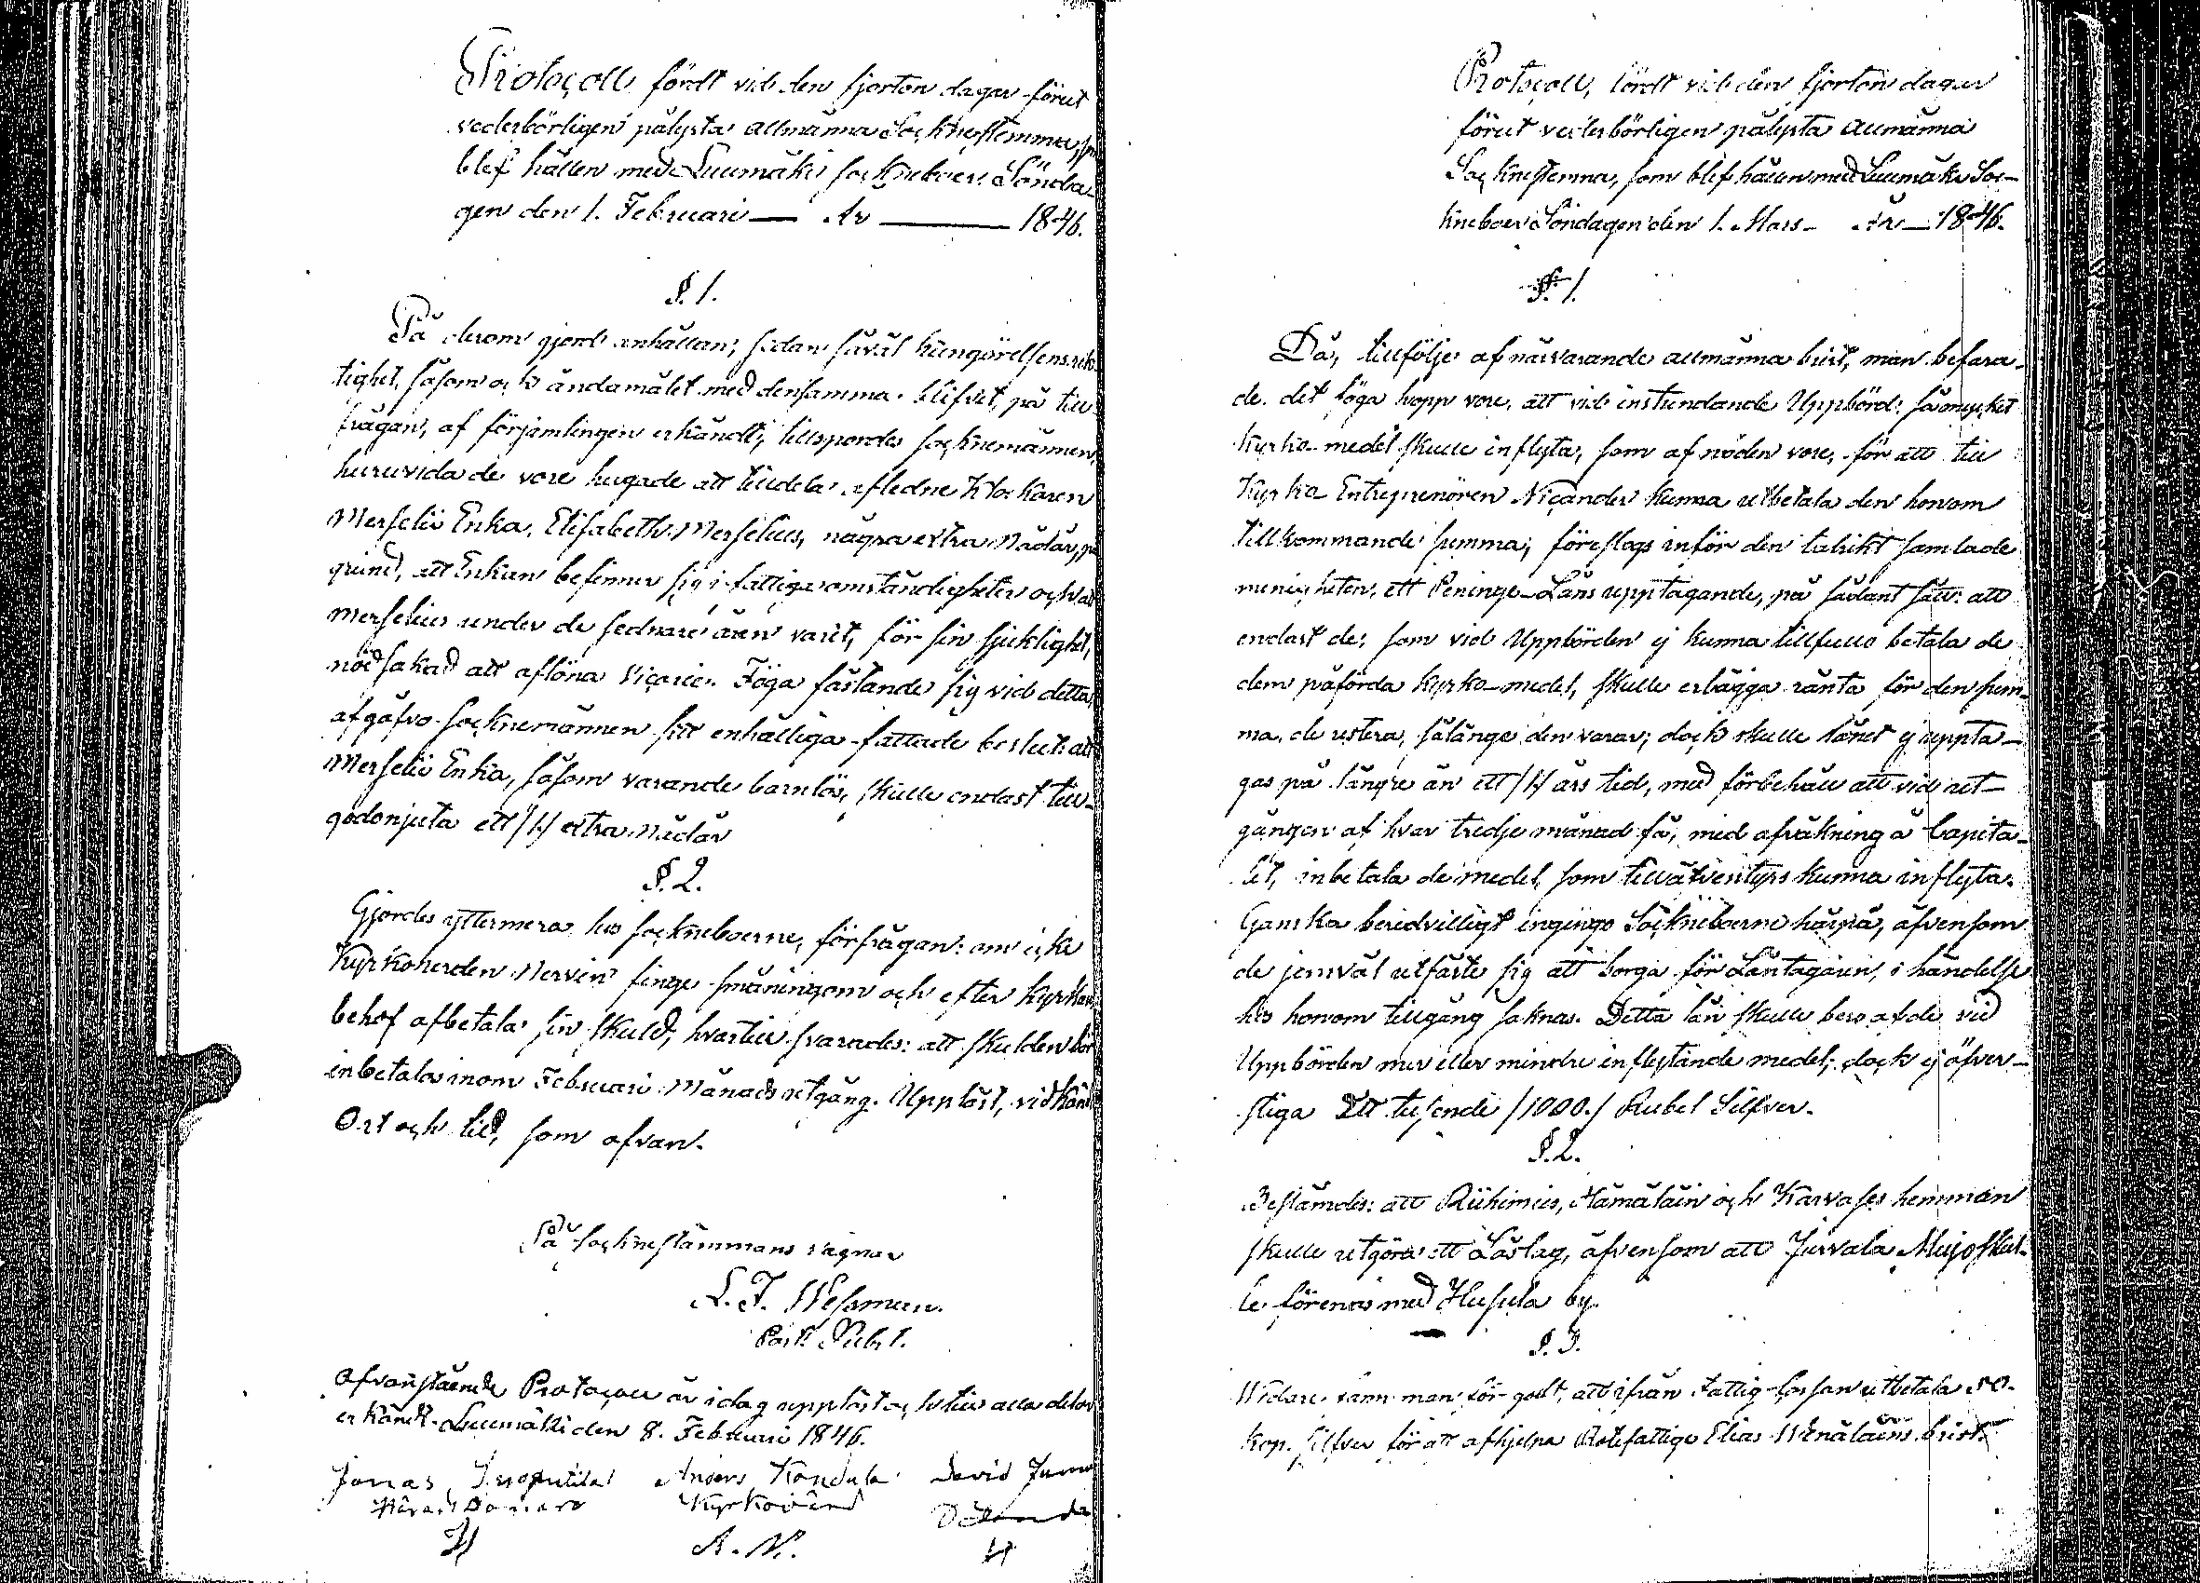 Protocoll fördt vid den fjorton dagar förut
vederbörligen pålysta allmänna Socknestemma, som
blef hållen med Luumäki Sockneboer Sönda-
gen den 1. Februari — År — 1846.
§. 1.
På derom gjord anhållan, sedan såväl kungörelsens rik-
tighet, såsom ock ändamålet med densamma blifvit, på till-
frågan, af församlingen erkändt, tillspordes Socknemännen,
huruvida de vore hugade att tilldela afledne Klockaren
Merselii Enka, Elisabeth Merselius, några extra Nådår, på
grund, att Enkan befinner sig i fattiga omständigheter och att
Merselius under de sednare åren varit, för sin sjuklighet,
nödsakad att aflöna Vicarie. Föga fästande sig vid detta,
afgåfvo Socknemännen sitt enhälliga fattade beslut: att
Merselii Enka, såsom varande barnlös, skulle endast till-
godonjuta ett /1/ extra Nådår
§. 2.
Gjordes yttermera hos Sockneboerne, förfrågan: om icke
Kyrkoherden Nervin finge småningom och efter Kyrkans
behof afbetala sin skuld, hvartill svarades: att skulden bör
inbetalas inom Februari Månads utgång. Uppläst, vidkändt
Ort och tid, som ofvan.
På Socknestämmans vägnar
L. F. Wessman.
Past. Subst.
Ofvanstående Protocoll är idag uppläst och till alla delar
erkändt. Luumäki den 8. Februari 1846.
Jonas Anders Kondula David
Kyrkovärd
A. N.
Protocoll, fördt vid den fjorton dagar
förut vederbörligen pålysta allmänna
Socknestemma, som blef hållen med Luumäki Soc-
kneboer Söndagen den 1. Mars — År — 1846.
§. 1.
Då, tillfölje af närvarande allmänna brist, man befara-
de det föga hopp vore, att vid instundande Uppbörd så mycket
Kyrko-medel skulle inflyta, som af nöden vore, för att till
Kyrko Entreprenören Nicander kunna utbetala den honom
tillkommande summa, föreslogs inför den talrikt samlade
menigheten, ett Peninge-Låns upptagande, på sådant sätt: att
endast de, som vid Uppbörden ej kunna tillfullo betala de
dem påförda Kyrko-medel, skulle erlägga ränta för den sum-
ma, de restera, sålänge den varar; dock skulle lånet ej uppta-
gas på längre än ett /1/ års tid, med förbehåll att vid ut-
gången af hvar tredje månad få, med afräkning å Capita-
let, inbetala de medel, som tilläfventyrs kunna inflyta.
Ganska beredvilligt ingingo Sockneboerne härpå, äfvensom
de jemväl utfäste sig att borga för Låntagaren, i händelse
hos honom tillgång saknas. Detta lån skulle bero af de vid
Uppbörden mer eller mindre inflytande medel, dock ej öfver-
stiga Ett tusende /1000./ Rubel Silfver.
§. 2.
Bestämdes: att Riihimies, Hämäläin och Karvases hemman
skulle utgöra ett Läslag, äfvensom att Jurvala skul-
le förenas med Husula by.
§. 3.
Widare fann man för godt, att ifrån Fattig-Cassan utbetala 50.
Kop. Silfver för att afhjelpa Rotefattige Elias Wenäläins brist.